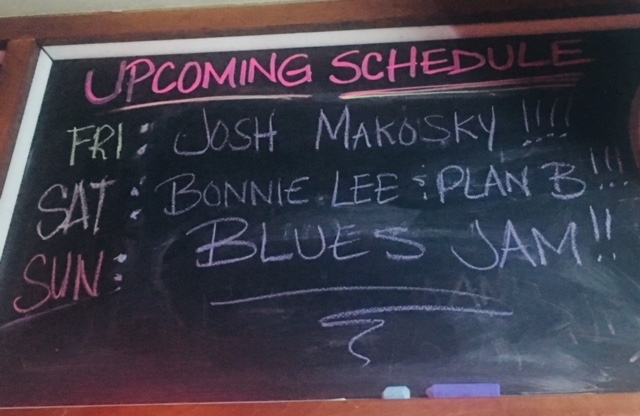 UPCOMING SCHEDULE
FRI: JOSH MAKOSKY !!!!
SAT: BONNIE LEE & PLAN B!!!
SUN: BLUES JAM!!